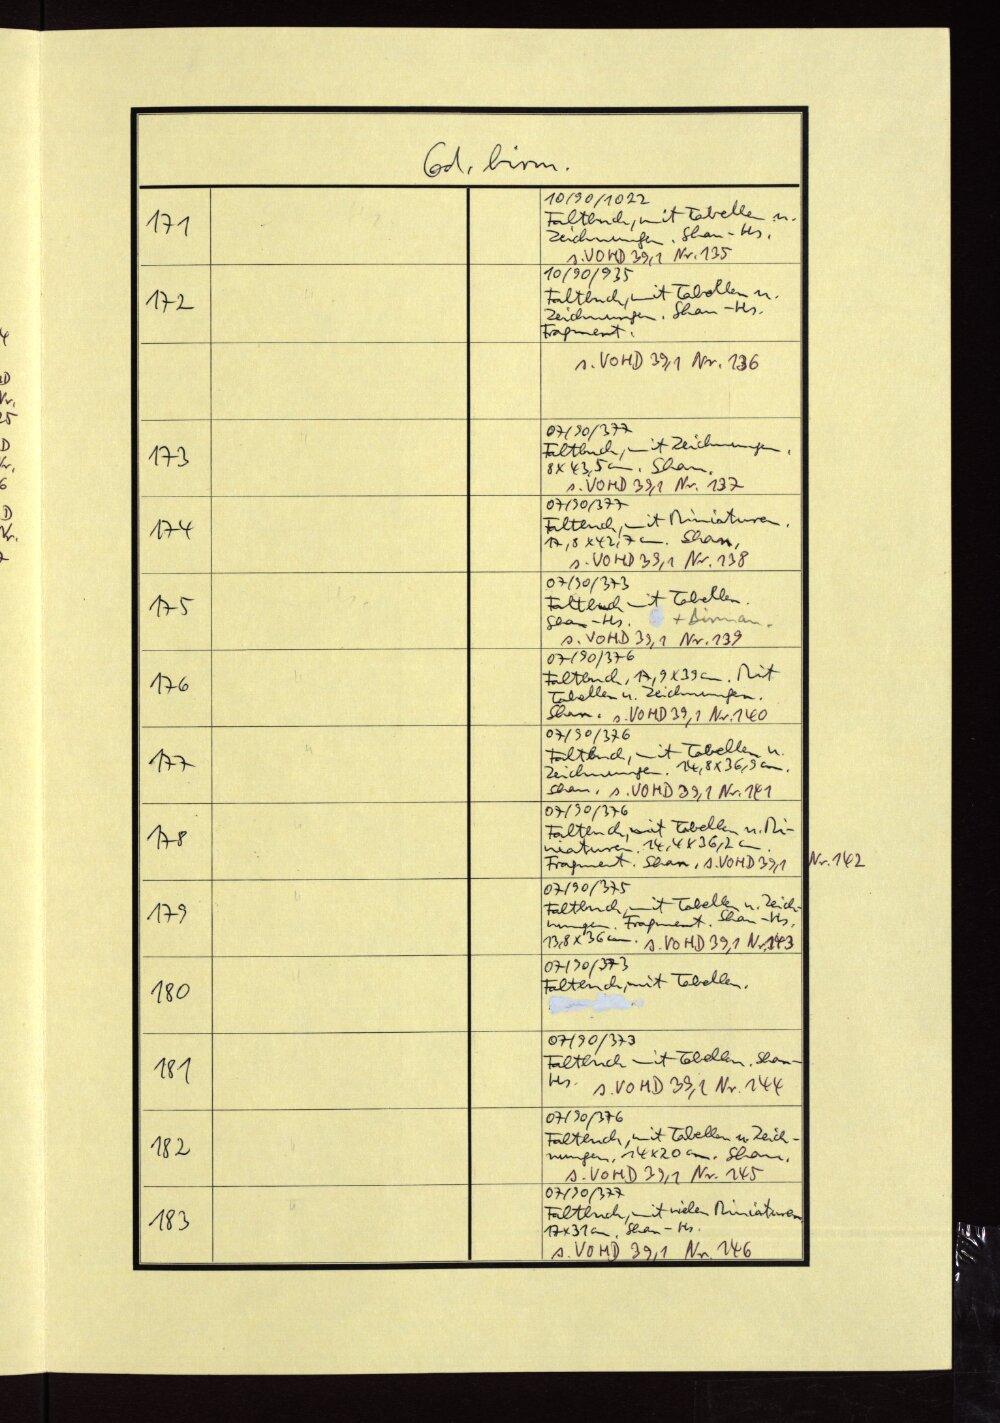 Cod. birm.
171
10/90/1022
Faltbuch, mit Tabellen u.
Zeichnungen. Shan-Hs.
s. VOHD 39,1 Nr. 135
172
10/90/935
Faltbuch, mit Tabellen u.
Zeichnungen. Shan-Hs.
Fragment.
s. VOHD 39,1 Nr. 136
173
07/90/377
Faltbuch, mit Zeichnungen.
8x43,5cm. Shan.
s. VOHD 39,1 Nr. 137
174
07/90/377
Faltbuch, mit Miniaturen.
17,8x42,7cm. Shan.
s. VOHD 39,1 Nr. 138
175
07/90/373
Faltbuch mit Tabellen.
Shan-Hs. + Birman.
s. VOHD 39,1 Nr. 139
176
07/90/376
Faltbuch, 17,9x39cm. Mit
Tabellen u. Zeichnungen.
Shan. s. VOHD 39,1 Nr. 140
177
07/90/376
Faltbuch, mit Tabellen u.
Zeichnungen. 14,8x36,9cm.
Shan. s. VOHD 39,1 Nr. 141
178
07/90/376
Faltbuch, mit Tabellen u. Mi-
niaturen. 14,4x36,2cm.
Fragment. Shan. s. VOHD 39,1 Nr. 142
179
07/90/375
Faltbuch, mit Tabellen u. Zeich-
nungen. Fragment. Shan-Hs.
13,8x36cm. s. VOHD 39,1 Nr. 143
180
07/90/373
Faltbuch, mit Tabellen.
181
07/90/373
Faltbuch mit Tabellen. Shan-
Hs. s. VOHD 39,1 Nr. 144
182
07/90/376
Faltbuch, mit Tabellen u. Zeich-
nungen. 14x20cm. Shan.
s. VOHD 39,1 Nr. 145
183
07/90/377
Faltbuch, mit vielen Miniaturen
17x31cm. Shan-Hs.
s. VOHD 39,1 Nr. 146